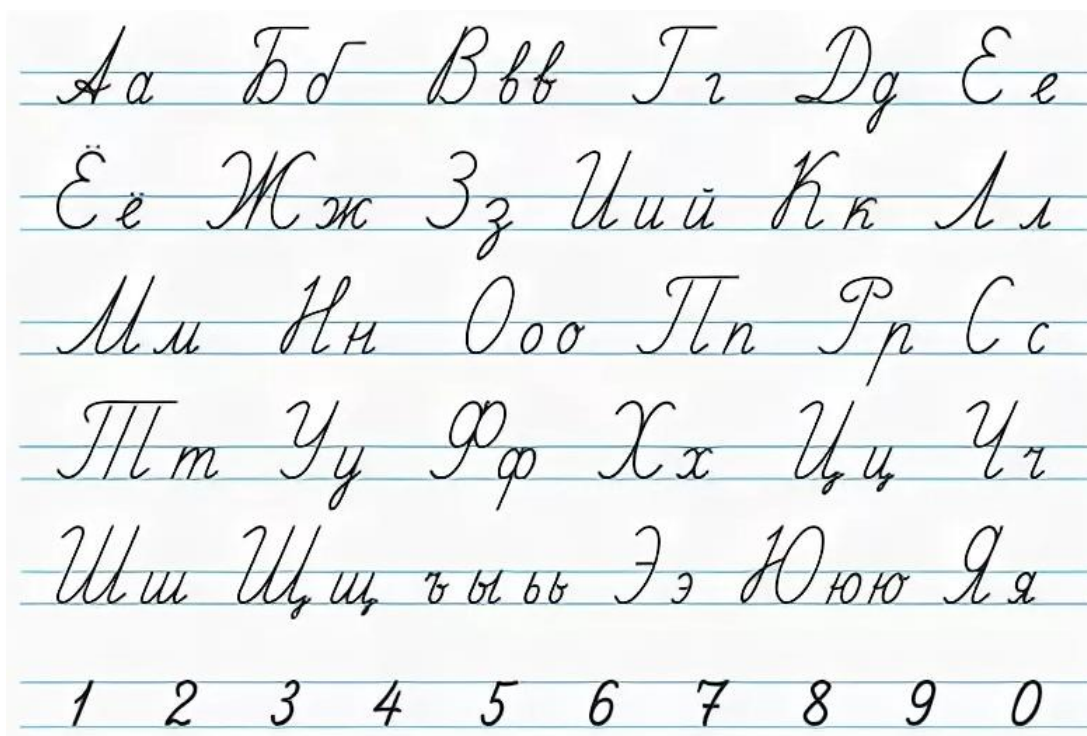 Аа Бб Ввв Гг Дд Ее
Ёё Жж Зз Иий Кк Лл
Мм Нн Ооо Пп Рр Сс
Тт Уу Фф Хх Цц Чч
Шш Щщ ъ ы ьь Ээ Ююю Яя
1 2 3 4 5 6 7 8 9 0